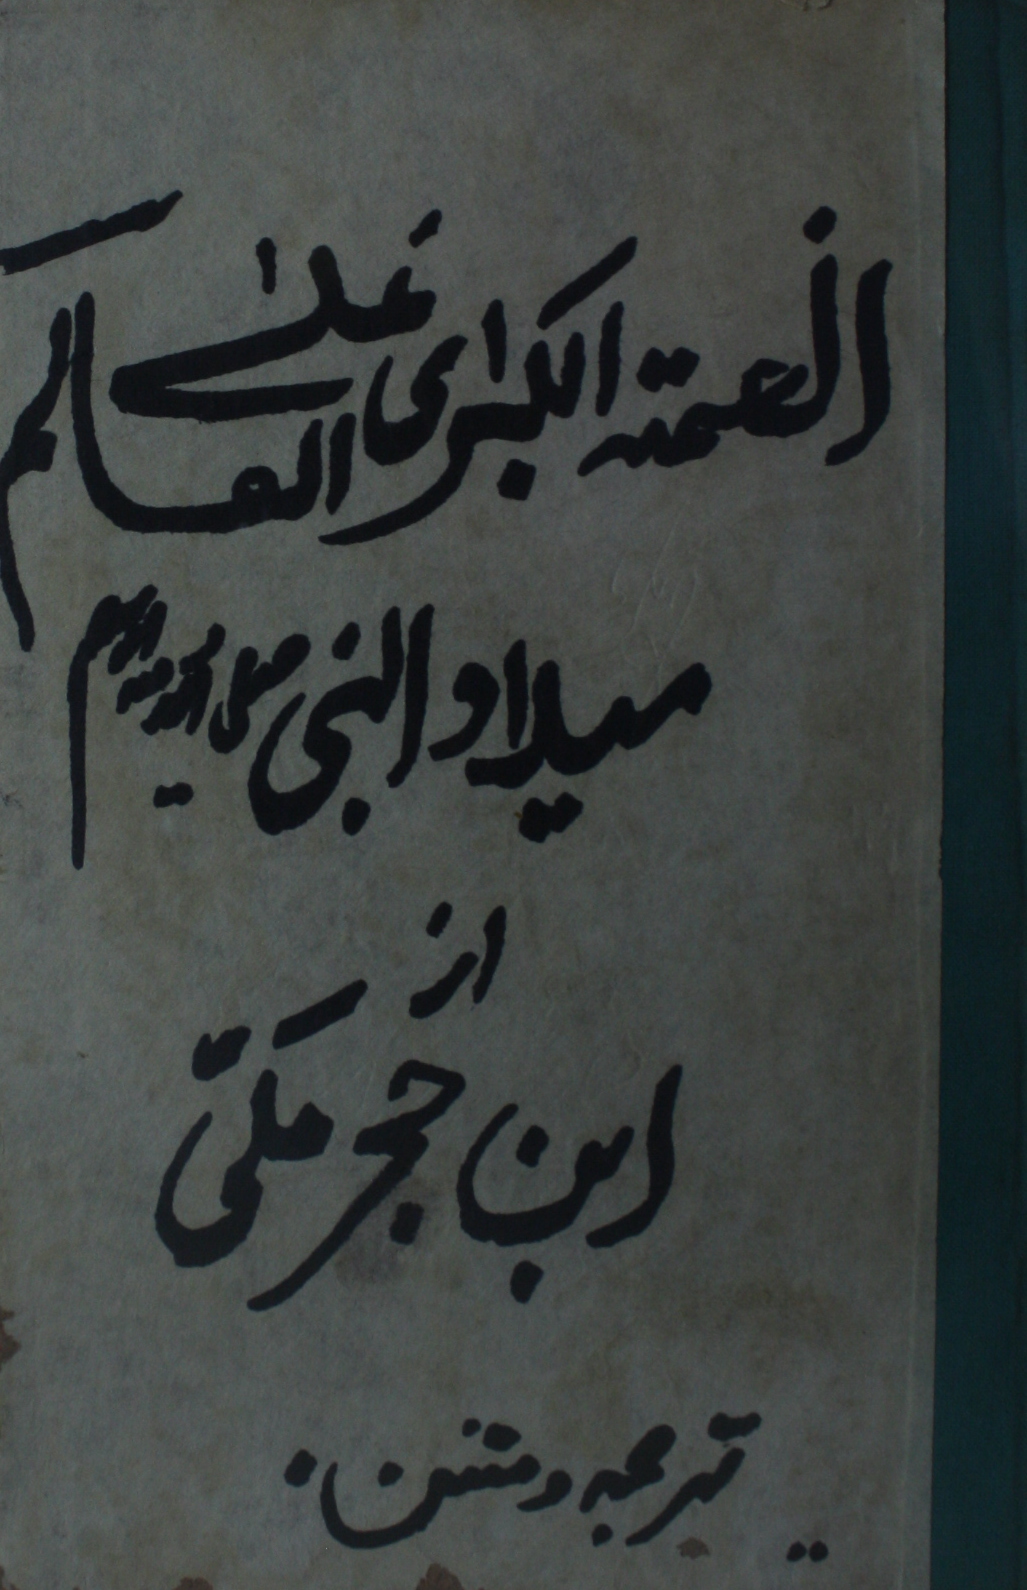 النعمتہ الکبرٰی علٰے العالم
میلاد النبی صلی اللہ علیہ وسلم
از
ابن حجر مکّی
ترجمہ و متن